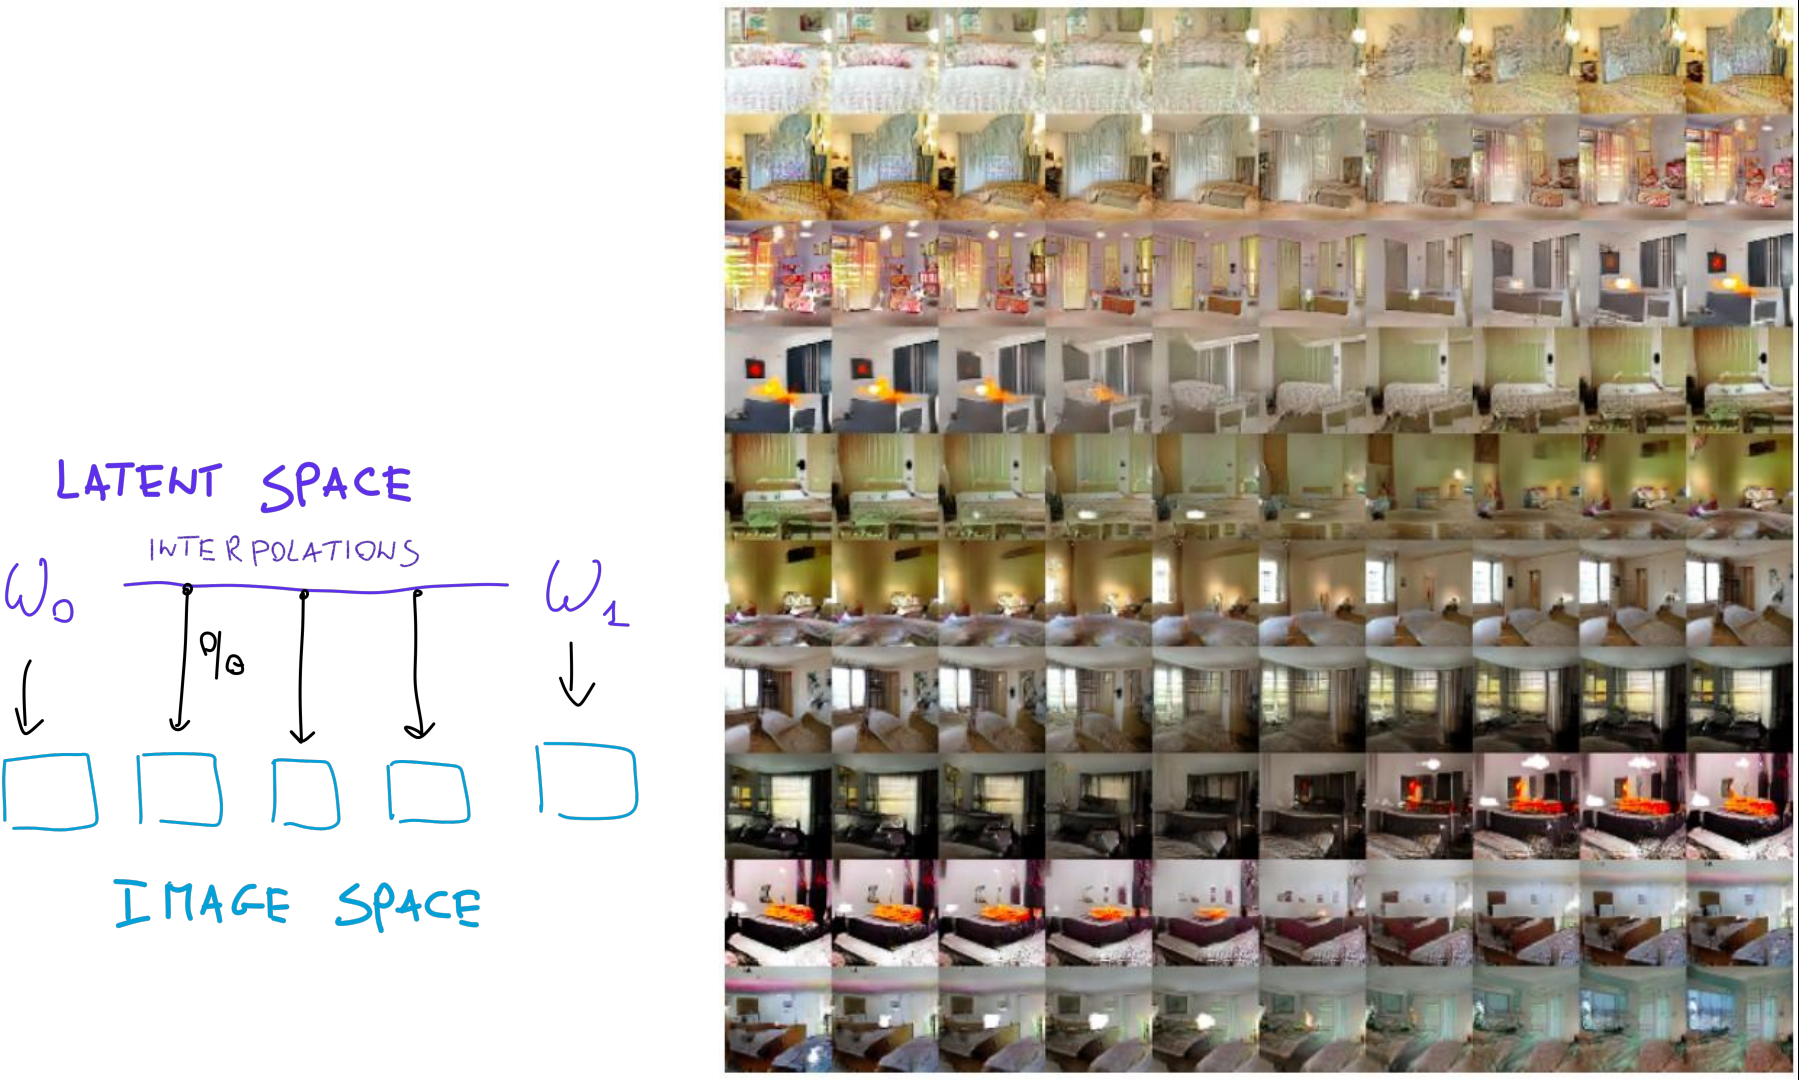 LATENT SPACE
INTERPOLATIONS
ω₀
ω₁
IMAGE SPACE